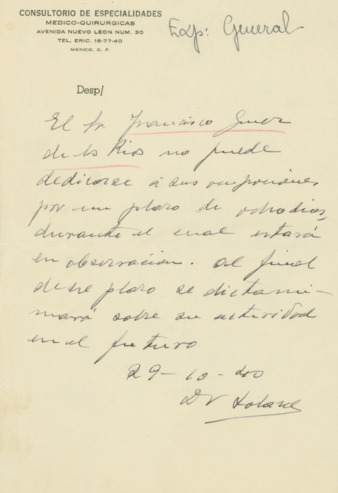 CONSULTORIO DE ESPECIALIDADES
MEDICO-QUIRURGICAS
AVENIDA NUEVO LEON NUM. 30
TEL. ERIC. 18-77-40
MEXICO, D. F.
Exp: General
Desp/
El Sr. Francisco Giner
de los Rios no puede
dedicarse á sus ocupaciones
por un plazo de ocho dias,
durante el cual estará
en observación. Al final
de ese plazo se dictami-
nará sobre su actividad
en el futuro
29-10-
Dr